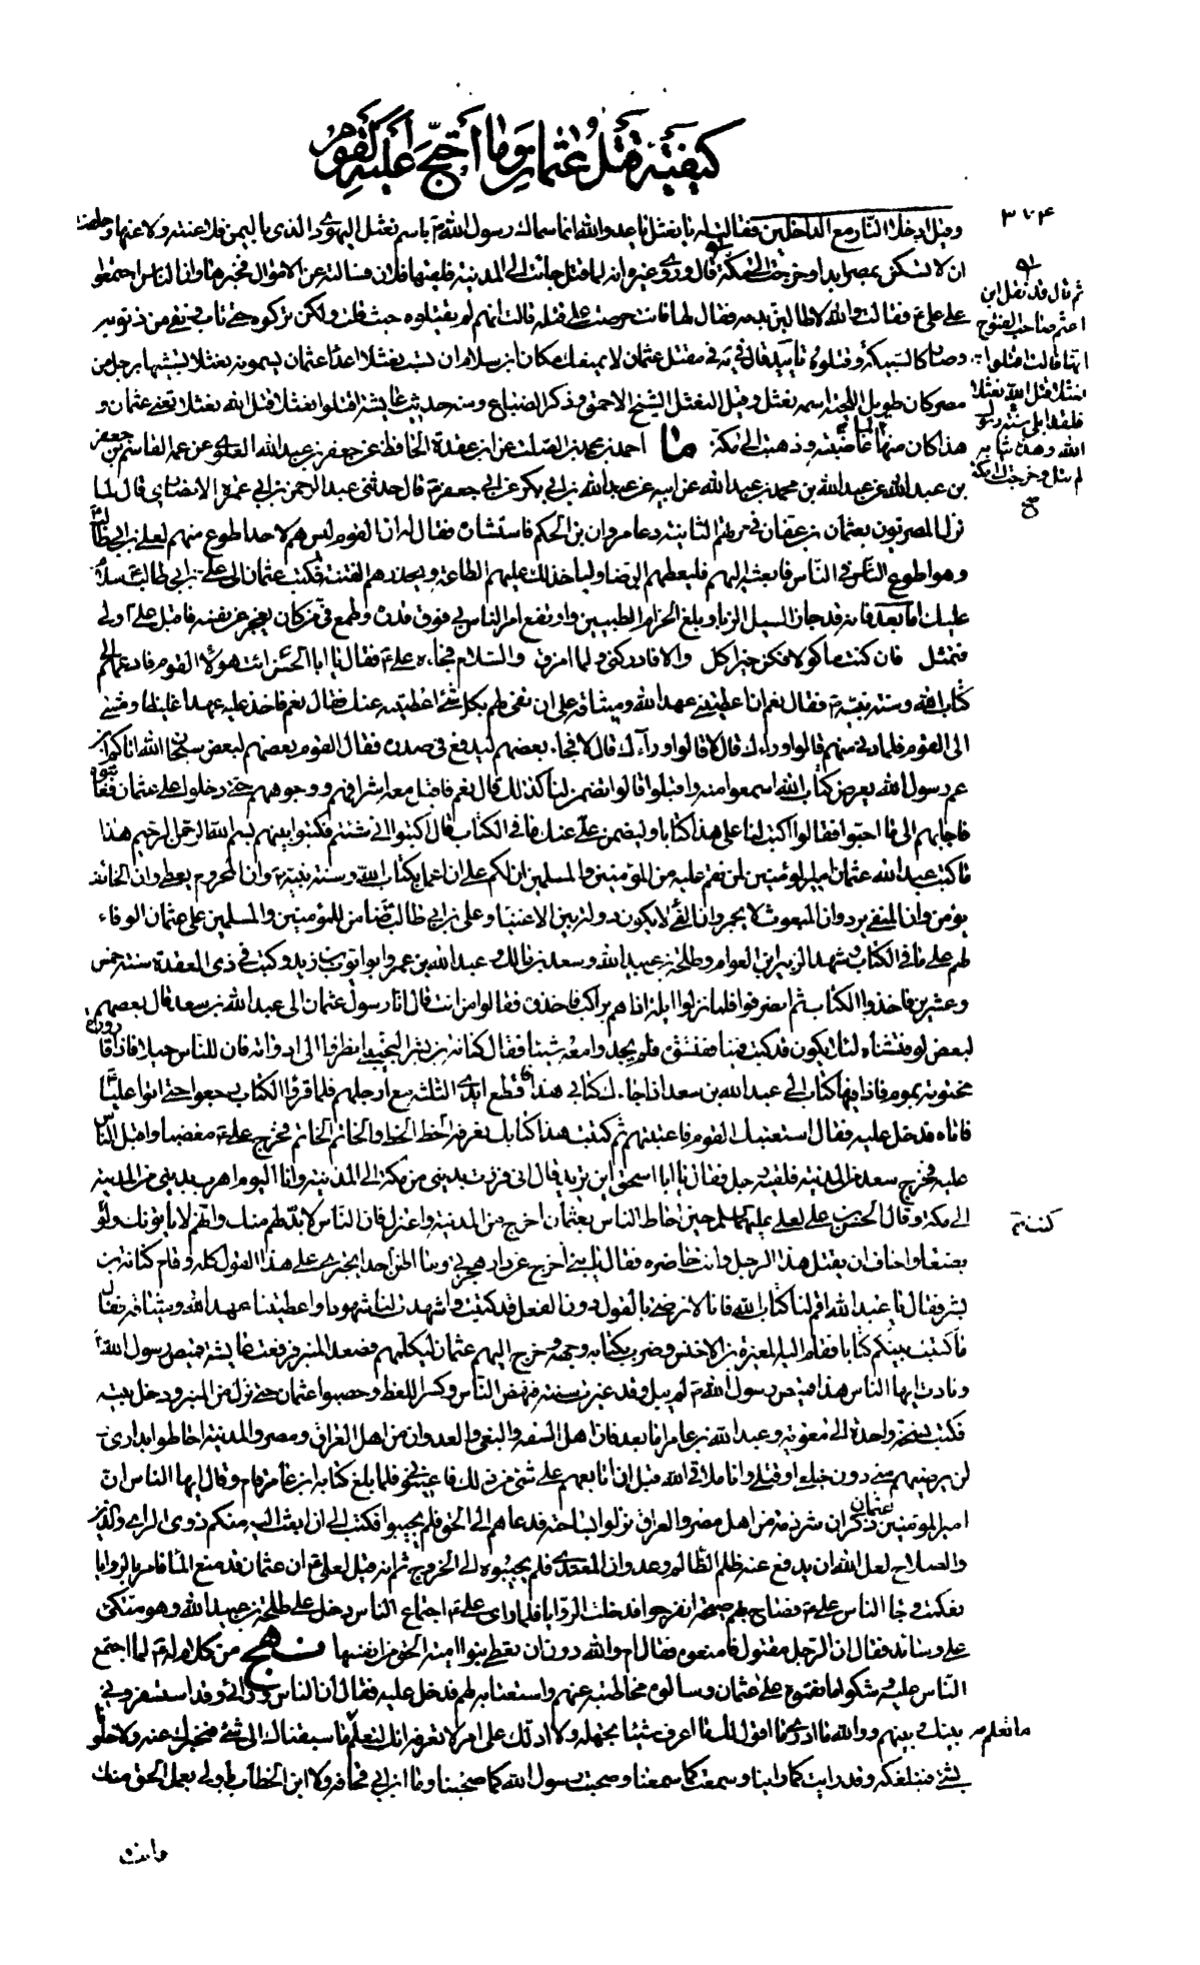 كيفية قتل عثمان وما احتج عليه القوم
٣٧٤
وقيل دخلا الناس مع الداخلين فقالت له يا نعثل يا عدو الله انما سماك رسول الله ص باسم نعثل اليهودي الذي باليمن فلاعنته ولاعنها وحلفت
ان لا تسكن بمصر ابدا وخرجت الى مكة قال وروى غيره انه لما قتل جاءت الى المدينة فلقيها فلان فسالته عن الاحوال فخبرها وان الناس اجتمعوا
على علي ع فقالت والله لاطالبن بدمه فقال لها فانت حرصت على قتله قالت انهم لم يقتلوه حيث قلت ولكن تركوه حتى تاب ونقى من ذنوبه
وصار كالسبيكة وقتلوه قال في ية في مقتل عثمان لا يمنعك مكان ابن سلام ان تسب نعثلا اعداء عثمان يسمونه نعثلا تشبيها برجل من
مصر كان طويل اللحية اسمه نعثل وقيل النعثل الشيخ الاحمق وذكر الضباع ومنه حديث عايشة اقتلوا نعثلا قتل الله نعثلا تعني عثمان و
هذا كان منها لما غاضبته وذهبت الى مكة ما احمد بن محمد بن الصلت عن ابن عقدة الحافظ عن جعفر بن عبد الله العلوي عن عمه القاسم بن جعفر
بن عبد الله عن عبد الله بن محمد بن عبد الله عن ابيه عن عبد الله بن ابي بكر عن ابي جعفر ع قال حدثني عبد الرحمن بن ابي عمرة الانصاري قال لما
نزل المصريون بعثمان بن عفان في مرتهم الثانية دعا مروان بن الحكم فاستشاره فقال له ان القوم ليس هم لاحد اطوع منهم لعلي بن ابي طالب
وهو اطوع الناس في الناس فابعثه اليهم فليعطهم الرضا وليأخذ لك عليهم الطاعة ويحذرهم الفتنة فكتب عثمان الى علي بن ابي طالب سلام
عليك اما بعد فانه قد جاز السيل الزبا وبلغ الحزام الطبيين وارتفع امر الناس بي فوق قدره وطمع في من كان يعجز عن نفسه فاقبل علي او لي
فتمثل فان كنت ماكولا فكن خير اكل والا فادركني ولما امزق والسلام فجاءه علي ع فقال يا ابا الحسن ائت هؤلاء القوم فادعهم الى
كتاب الله وسنة نبيه ص فقال نعم ان اعطيتني عهد الله وميثاقه على ان تفي لهم بكل شئ اعطيته عنك فقال نعم فاخذ عليه عهدا غليظا ومشى
الى القوم فلما دنى منهم قالوا وراءك قال لا قالوا وراءك قال لا فجاء بعضهم ليدفع في صدره فقال القوم بعضهم لبعض سبحان الله اتاكم ابن
عم رسول الله يعرض كتاب الله اسمعوا منه واقبلوا قالوا تضمن لنا كذلك قال نعم فاقبل معه اشرافهم ووجوههم حتى دخلوا على عثمان فعاتبوه
فاجابهم الى ما احبوا فقالوا اكتب لنا على هذا كتابا وليضمن علي عنك ما في الكتاب قال اكتبوا انى شئتم فكتبوا بينهم بسم الله الرحمن الرحيم هذا
ما كتب عبد الله عثمان امير المؤمنين لمن نقم عليه من المؤمنين والمسلمين ان لكم علي ان اعمل بكتاب الله وسنة نبيه ص وان المحروم يعطى وان الخائف
يؤمن وان المنفي يرد وان المبعوث لا يجمر وان الفئ لا يكون دولة بين الاغنياء وعلي بن ابي طالب ضامن للمؤمنين والمسلمين على عثمان الوفاء
لهم على ما في الكتاب شهد الزبير بن العوام وطلحة بن عبيد الله وسعد بن مالك وعبد الله بن عمر وابو ايوب بن زيد وكتب في ذي القعدة سنة خمس
وعشرين فاخذوا الكتاب ثم انصرفوا فلما نزلوا ايلة اذا هم براكب فاخذوه فقالوا من انت قال انا رسول عثمان الى عبد الله بن سعد قال بعضهم
لبعض لو فتشناه لئلا يكون قد كتب فينا ففتشوه فلم يجدوا معه شيئا فقال كنانة بن بشر التجيبي انظروا الى ادواته فان للناس حيلا فاذا قارورة
مختومة بموم فاذا فيها كتاب الى عبد الله بن سعد اذا جاءك كتابي هذا فاقطع ايدي الثلثة مع ارجلهم فلما قرؤا الكتاب رجعوا حتى اتوا عليا
فاتاه فدخل عليه فقال استعتبك القوم فاعتبتهم ثم كتبت هذا كتابك نعرفه الخط الخط والخاتم الخاتم فخرج علي ع مغضبا واقبل الناس
عليه فخرج سعد من المدينة فلقيه رجل فقال يا ابا اسحق اين تريد قال اني فررت بديني من مكة الى المدينة وانا اليوم اهرب بديني من المدينة
الى مكة وقال الحسن بن علي لعلي عليهما السلم حين احاط الناس بعثمان اخرج من المدينة واعتزل فان الناس لا بد لهم منك وانهم لاتونك ولو
بصنعاء واخاف ان يقتل هذا الرجل وانت حاضره فقال يا بني اخرج عن دار هجرتي وما اظن احدا يجترئ على هذا القول كله وقام كنانة بن
بشر فقال يا عبد الله اقم لنا كتاب الله فانا لا نرضى بالقول دون الفعل قد كتبت واشهدت لنا شهودا واعطيتنا عهد الله وميثاقه فقال
ما كتبت بينكم كتابا فقام اليه المغيرة بن الاخنس وضرب بكتابه وجهه وخرج اليهم عثمان ليكلمهم فصعد المنبر فرفعت عايشة قميص رسول الله ص
ونادت ايها الناس هذا قميص رسول الله ص لم يبل وقد غيرت سنته فنهض الناس وكثر اللغط وحصبوا عثمان حتى نزل من المنبر ودخل بيته
فكتب نسخة واحدة الى معوية وعبد الله بن عامر اما بعد فان اهل السفه والبغي والعدوان من اهل العراق ومصر والمدينة احاطوا بداري
لن يرضيهم مني دون خلعي او قتلي وانا ملاقي الله قبل ان اتابعهم على شئ من ذلك فاعينوني فلما بلغ كتابه ابن عامر قام وقال ايها الناس ان
امير المؤمنين عثمان ذكر ان شرذمة من اهل مصر والعراق نزلوا بساحته فدعاهم الى الحق فلم يجيبوا فكتب الي ان ابعث اليه منكم ذوي الراي والدين
والصلاح لعل الله ان يدفع عنه ظلم الظالم وعدوان المعتدي فلم يجيبوه الى الخروج ثم انه قيل لعلي ع ان عثمان قد منع الماء فامر بالروايا
فعكمت وجاء الناس علي ع فصاح بهم صيحة انفرجوا فدخلت الروايا فلما راى علي ع اجتماع الناس دخل على طلحة بن عبيد الله وهو متكئ
على وسائد فقال ان الرجل مقتول فامنعوه فقال ام والله دون ان تعطي بنو امية الحق من انفسها نهج من كلام له ع لما اجتمع
الناس عليه وشكوا ما نقموه على عثمان وسالوه مخاطبته عنهم واستعتابه لهم فدخل عليه فقال ان الناس ورائي وقد استسفروني
بينك وبينهم ووالله ما ادري ما اقول لك ما اعرف شيئا تجهله ولا ادلك على امر لا تعرفه انك لتعلم ما نعلم ما سبقناك الى شئ فنخبرك عنه ولا خلونا
بشئ فنبلغكه وقد رايت كما راينا وسمعت كما سمعنا وصحبت رسول الله كما صحبنا وما ابن ابي قحافة ولا ابن الخطاب باولى بعمل الحق منك
وانت
ثم قال قد نقل ابن
اعثم صاحب الفتوح
انها قالت اقتلوا
نعثلا قتل الله نعثلا
فلقد ابلى سنة رسول
الله وهذه ثيابه
لم تبل وخرجت الى مكة
صح
كنت ع
ما نعلم